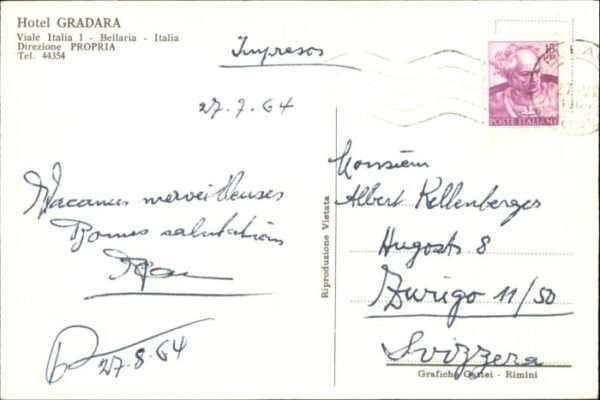 Hotel GRADARA
Viale Italia 1 - Bellaria - Italia
Direzione PROPRIA
Tel. 44354
Impresos
27.7.64
Vacances merveilleuses
Bonnes salutations
27.8.64
Riproduzione Vietata
POSTE ITALIANE
Monsieur
Albert Kellenberger
Hugostr. 8
Zurigo 11/50
Svizzera
Grafiche Gattei - Rimini